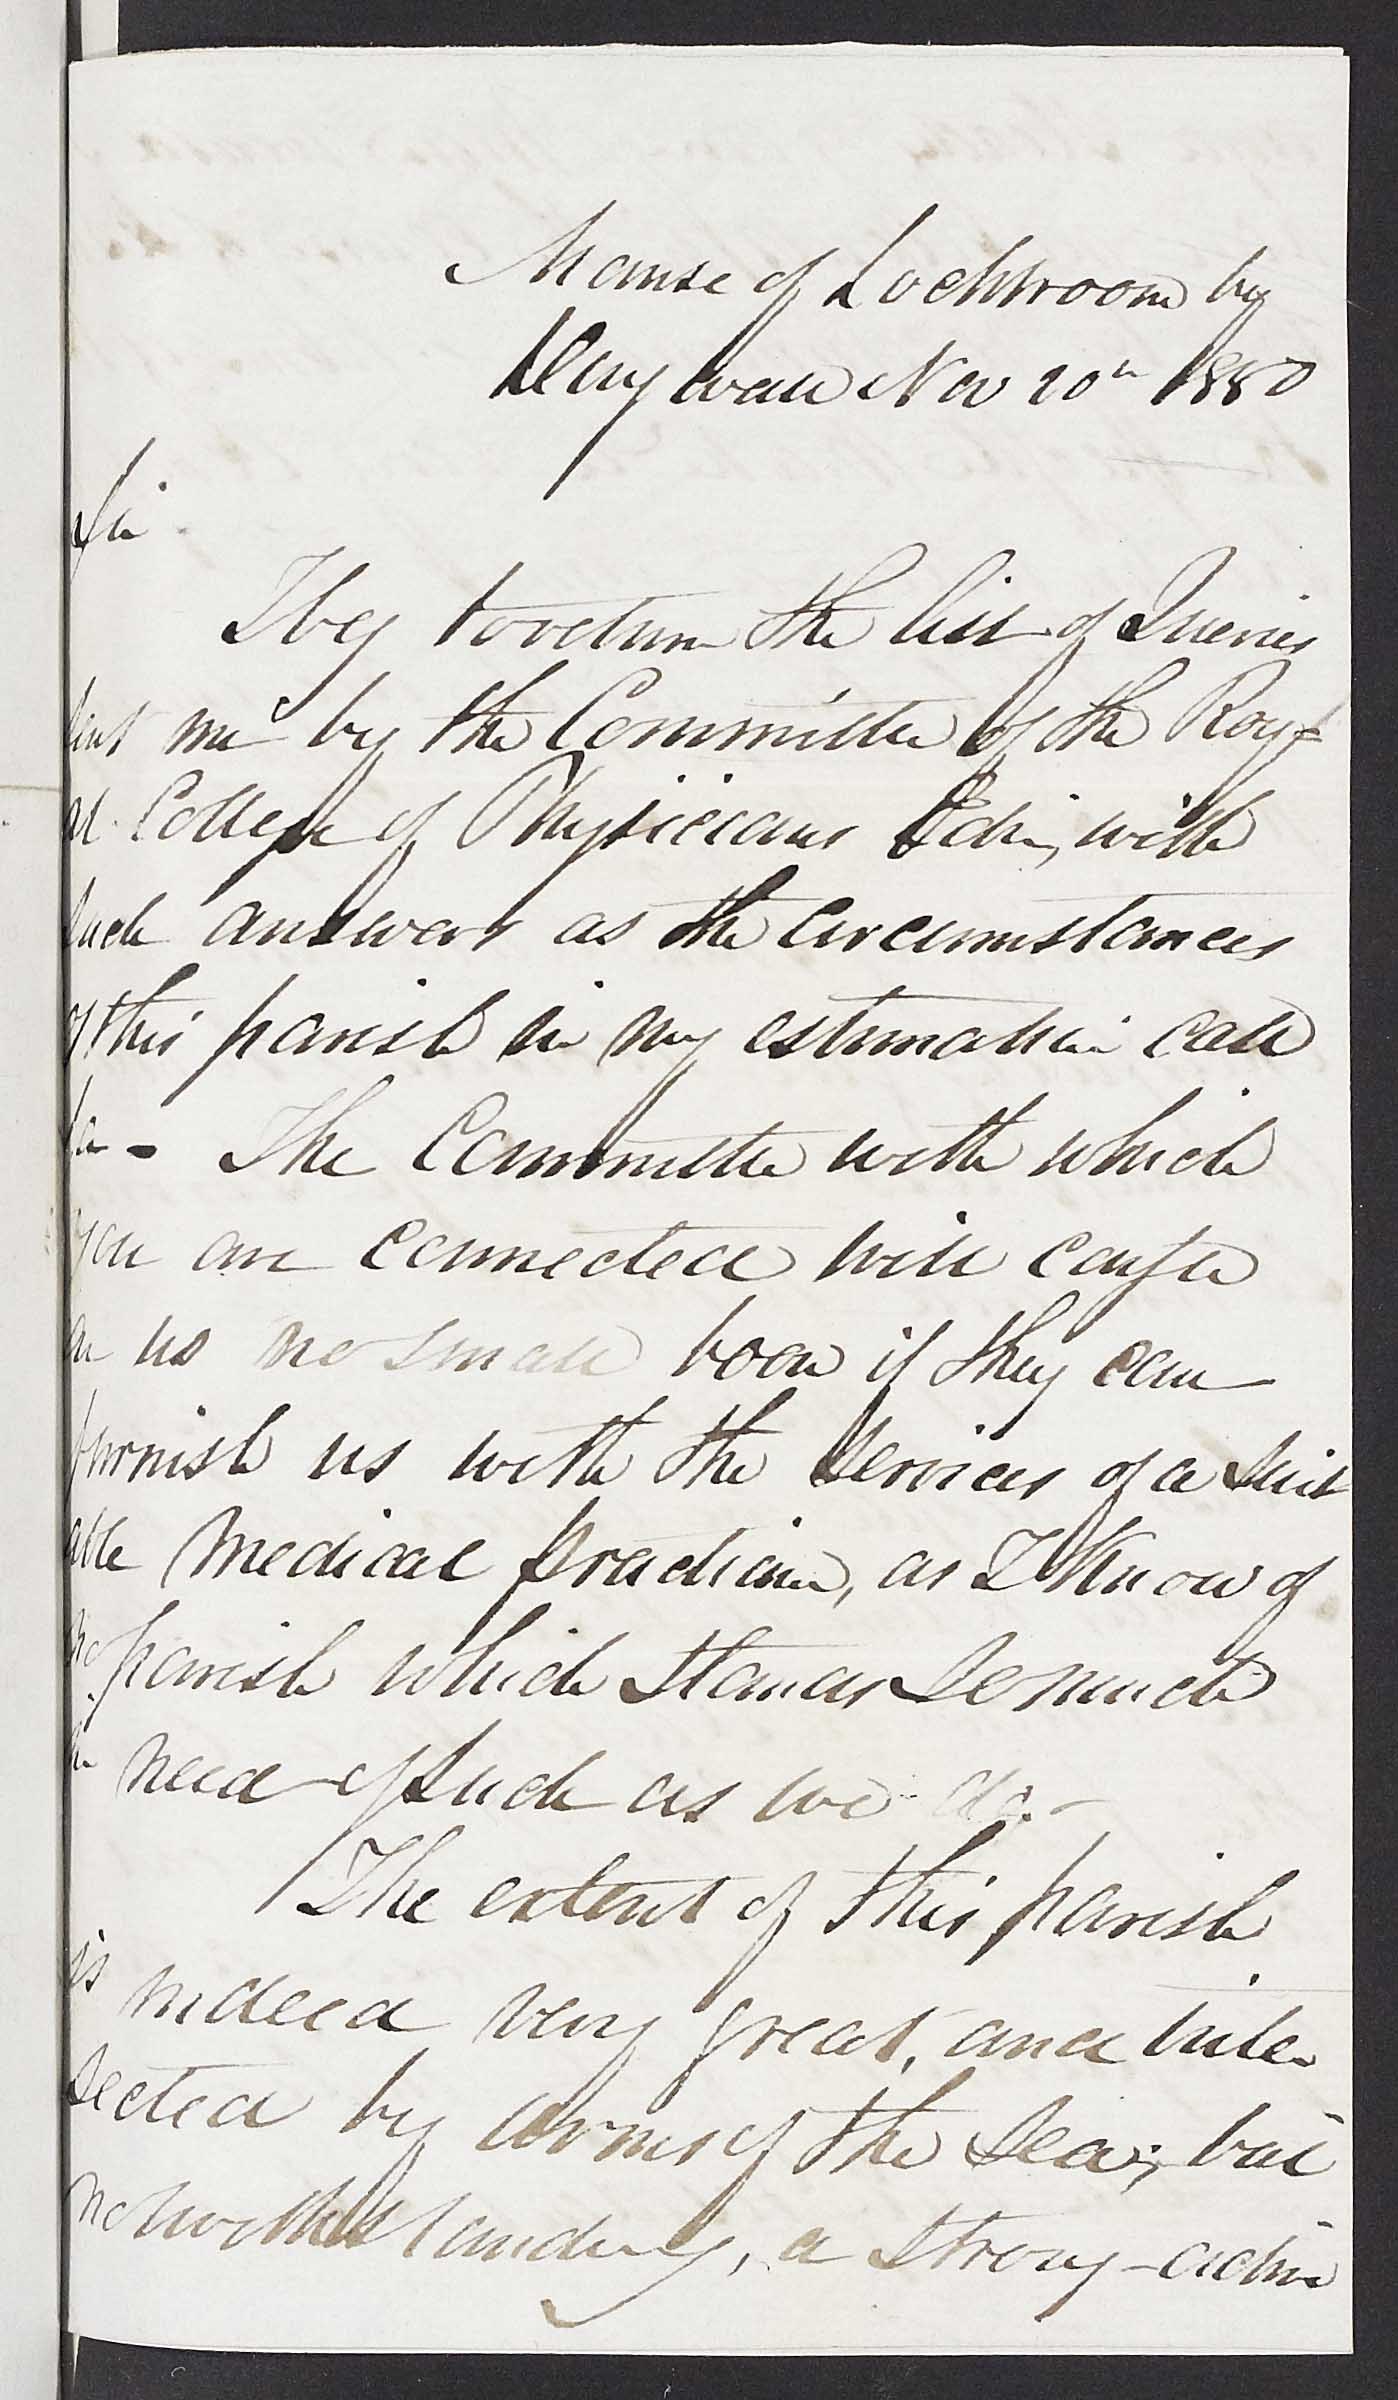 Manse of Lochbroom by
Dingwall Nov 20th 1850
Sir
I beg to return the list of Queries
sent me by the Committee of the Roy=
al College of Physicians Edin, with
such answers as the circumstances
of this parish in my estimation call
for - The Committee with which
you are connected will confer
on us no small boon if they can
furnish us with the services of a suit
able medical practician, as I know of
no parish which stands so much
in need of such as we do. -
The extent of this parish
is indeed very great, and inter
sected by arms of the Sea; but
notwithstanding, a strong-active